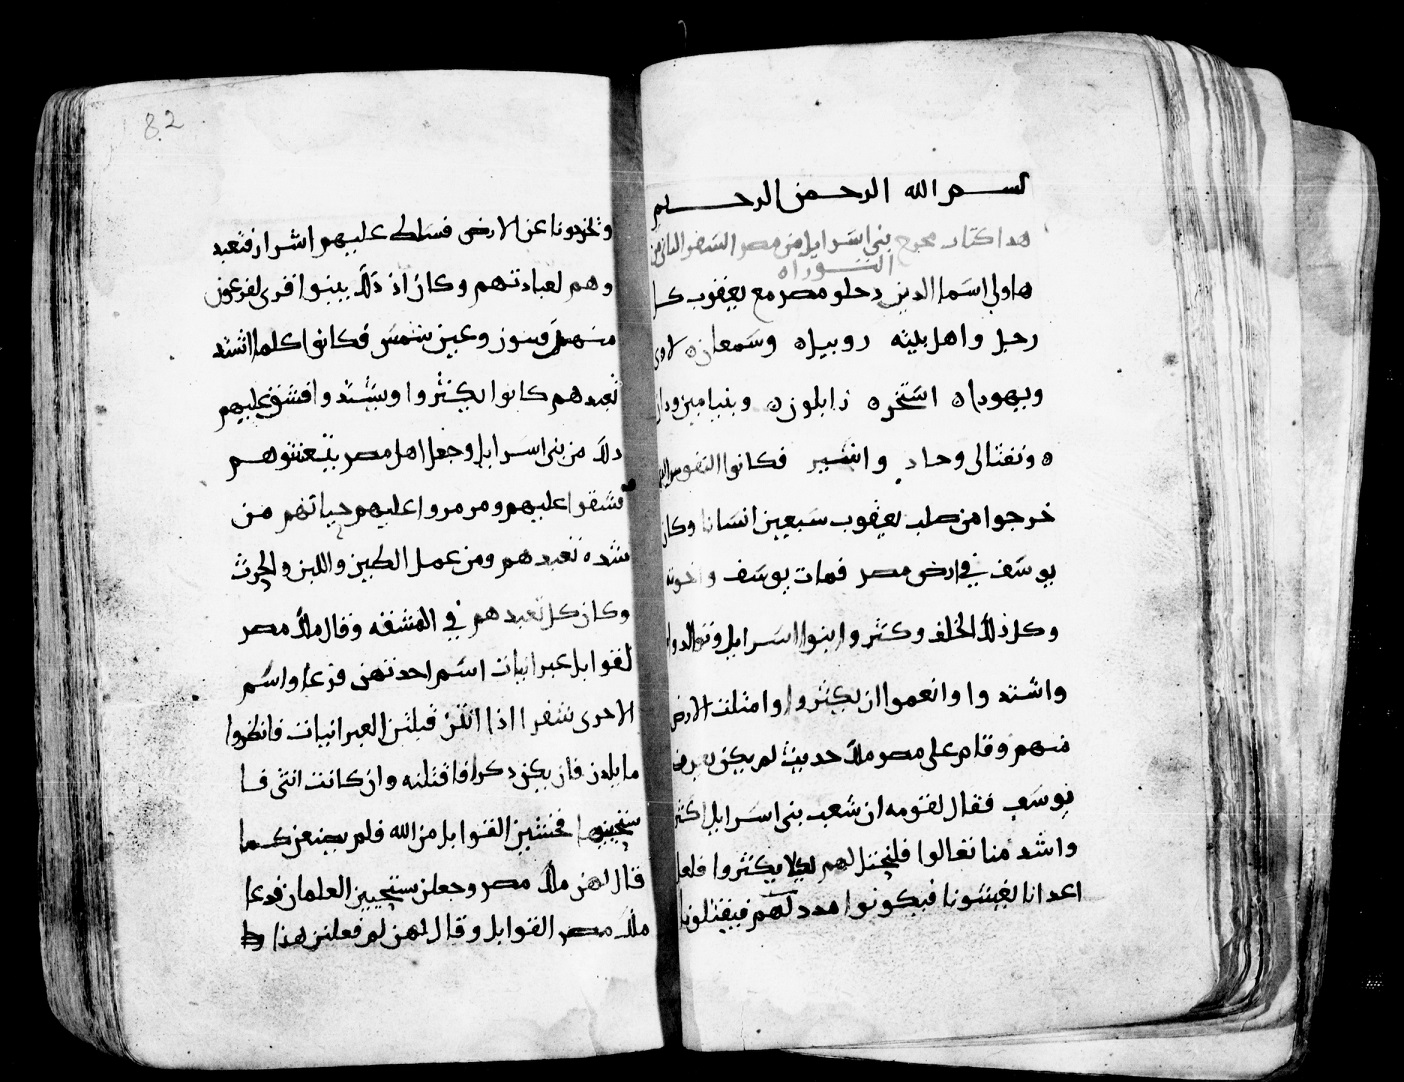 بسم الله الرحمن الرحيم
هدا كتاب مخرج بني اسرايل من مصر السفر الثاني من
التوراه
هاولي اسما الدين دخلو مصر مع يعقوب كل
رجل واهل بيته روبيل ه وسمعان ه لاوي
ويهودا ه اسخر ه زابلون ه وبنيامين ودان
ه ونفتالي وجاد واشير فكانوا النفوس الذين
خرجوا من صلب يعقوب سبعين انسانا وكان
يوسف في ارض مصر فمات يوسف واخوته
وكل ذلك الخلف وكثروا بنوا اسرايل وتوالدوا
واشتدوا وانعموا ان يكثروا وامتلت الارض
منهم وقام على مصر ملك حديث لم يكن يعرف
يوسف فقال لقومه ان شعب بني اسرايل اكثر
واشد منا تعالوا فلنحتل لهم لكيلا يكثروا فلعل
اعدانا يغيشونا فيكونوا مدد لهم فيقتلونا
82
ويخرجونا عن الارض فسلط عليهم اشرار فتعبد
وهم لعبادتهم وكان اذ ذلك يبنوا قرى لفرعون
منهم فيوز وعين شمس فكانوا كلما اشتد
تعبدهم كانوا يكثروا ويشتدوا فشق عليهم
دلك من بني اسرايل وجعل اهل مصر يتعنتوهم
فشقوا عليهم ومرمروا عليهم حياتهم من
شده تعبدهم ومن عمل الطين واللبن والحرث
وكان كل تعبدهم في المشقه وقال ملك مصر
لقوابل عبرانيات اسم احدتهن فزعا واسم
الاخرى شفرا اذا انتن قبلتن العبرانيات فانظروا
ما يلدن فان يكن دكرا فاقتلنه وان كانت انثى فا
ستحيينها فخشين القوابل من الله فلم يصنعن كما
قال لهن ملك مصر وجعلن يستحيين الغلمان فدعا
ملك مصر القوابل وقال لهن لم فعلتن هذا